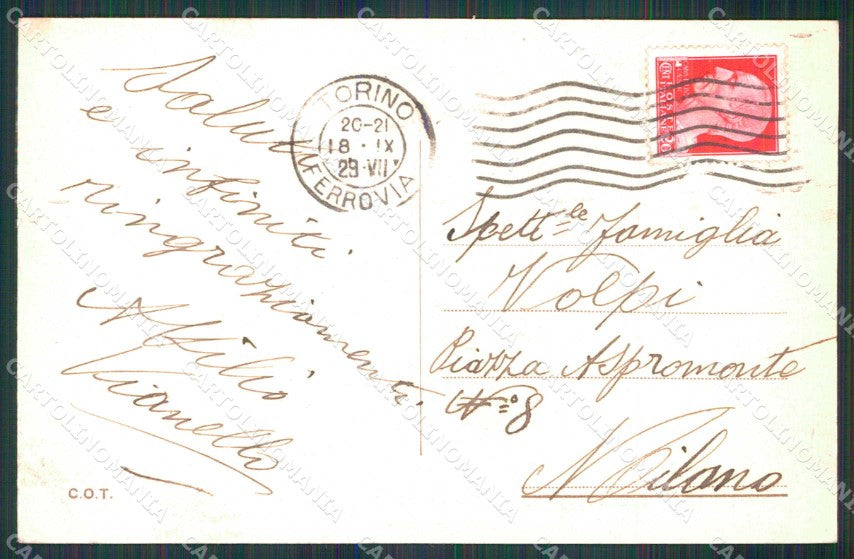 Saluti
e infiniti
ringraziamenti
Attilio
Vianello
C.O.T.
TORINO
20-21
18 · IX
29 · VII
FERROVIA
Spett.le famiglia
Volpi
Piazza Aspromonte
N° 8
Milano
CARTOLINOMANIA